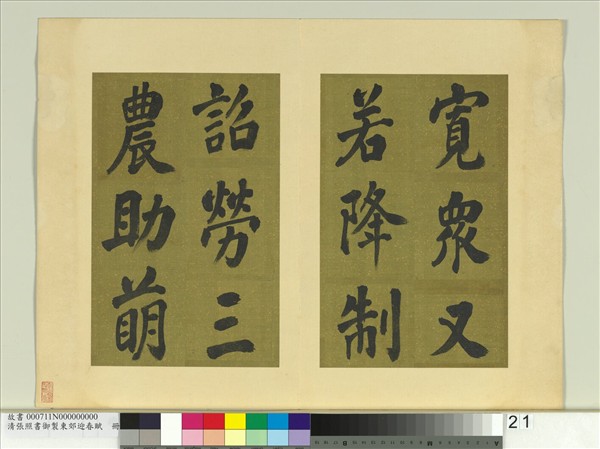 寬衆又
若降制
詔勞三
農助萌
故書 000711N000000000
清張照書御製東郊迎春賦 冊
21